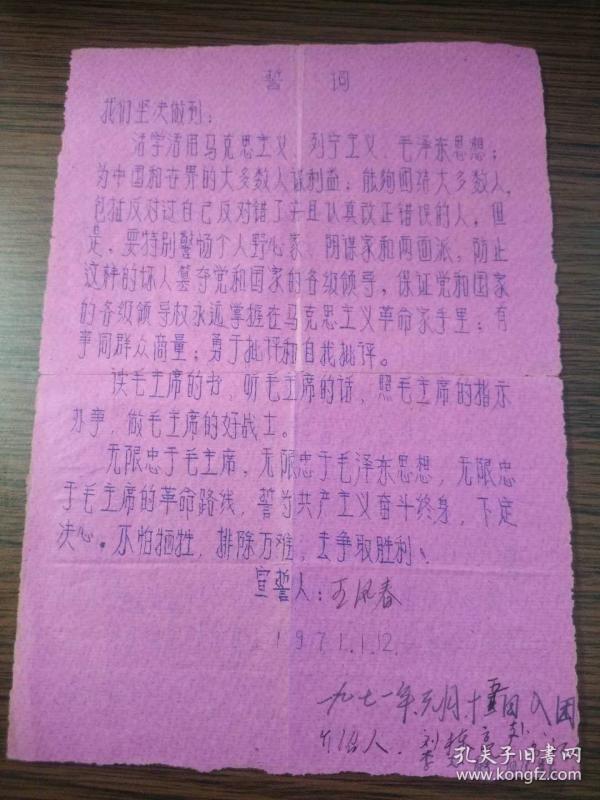 誓 词
我们坚决做到：
活学活用马克思主义、列宁主义、毛泽东思想；
为中国和世界的大多数人谋利益；能够团结大多数人，
包括反对过自己反对错了并且认真改正错误的人，但
是，要特别警惕个人野心家、阴谋家和两面派，防止
这样的坏人篡夺党和国家的各级领导，保证党和国家
的各级领导权永远掌握在马克思主义革命家手里；有
事同群众商量；勇于批评和自我批评。
读毛主席的书，听毛主席的话，照毛主席的指示
办事，做毛主席的好战士。
无限忠于毛主席，无限忠于毛泽东思想，无限忠
于毛主席的革命路线，誓为共产主义奋斗终身，下定
决心。不怕牺牲，排除万难，去争取胜利、
宣誓人：王凤春
1971.1.12.
一九七一年元月十五日入团
介绍人．刘
孔夫子旧书网
www.kongfz.com